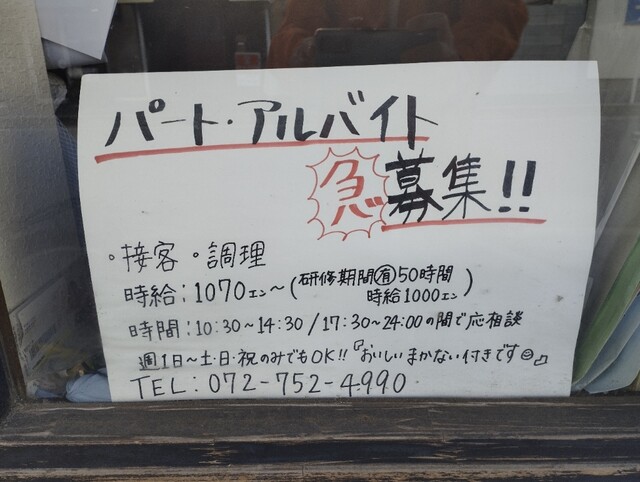 パート・アルバイト
急募集!!
・接客・調理
時給:1070エン~(研修期間㊒50時間
時給1000エン)
時間:10:30~14:30/17:30~24:00の間で応相談
週1日~土・日・祝のみでもOK!!『おいしいまかない付きです☺』
TEL:072-752-4990